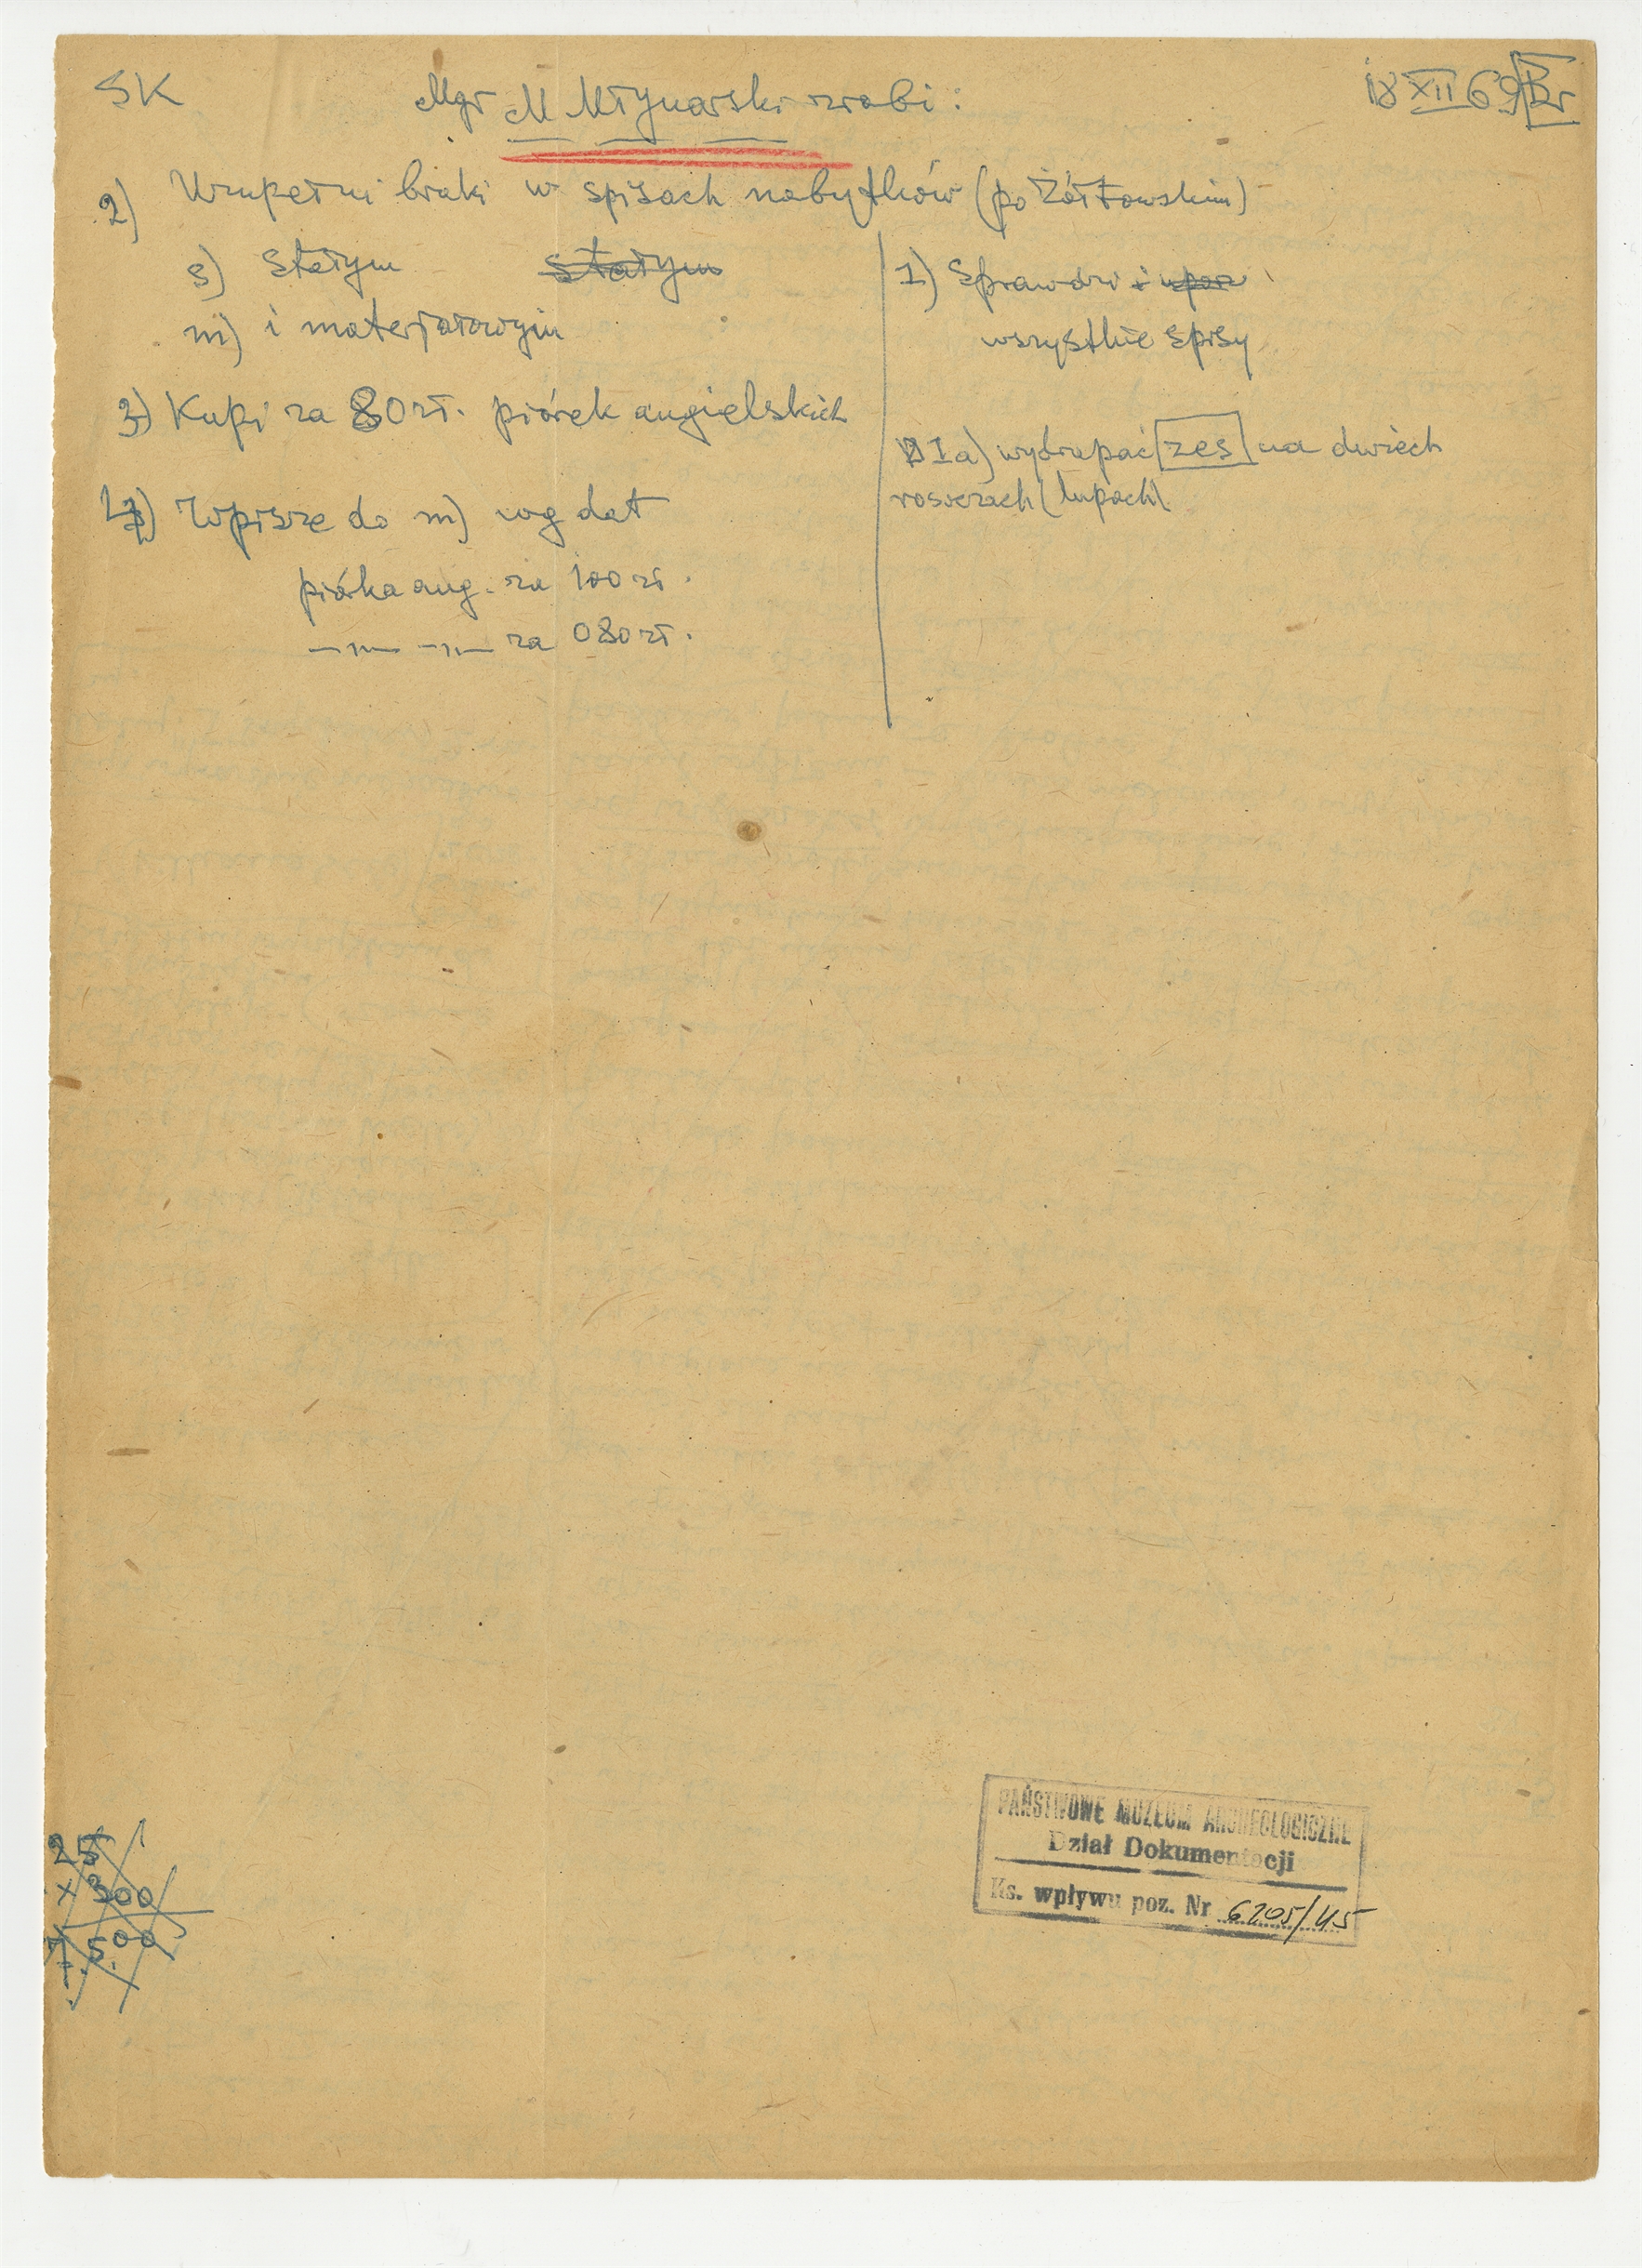 SK
Mgr M Młynarski zrobi:
18 XII 69
2) Uzupełni braki w spisach nabytków (po Żółtowskim)
s) stałym stałym
m) i materjałowym
3) Kupi za 80 zł. piórek angielskich
4) Wpisze do m) wg dat
piórka ang. za 100 zł.
—"— —"— za 080 zł.
1) Sprawdzi i upor
wszystkie spisy
1a) wydrapać zes na dwóch
lupach
25
x 300
7.500
PAŃSTWOWE MUZEUM ARCHEOLOGICZNE
Dział Dokumentacji
Ks. wpływu poz. Nr 6205/45